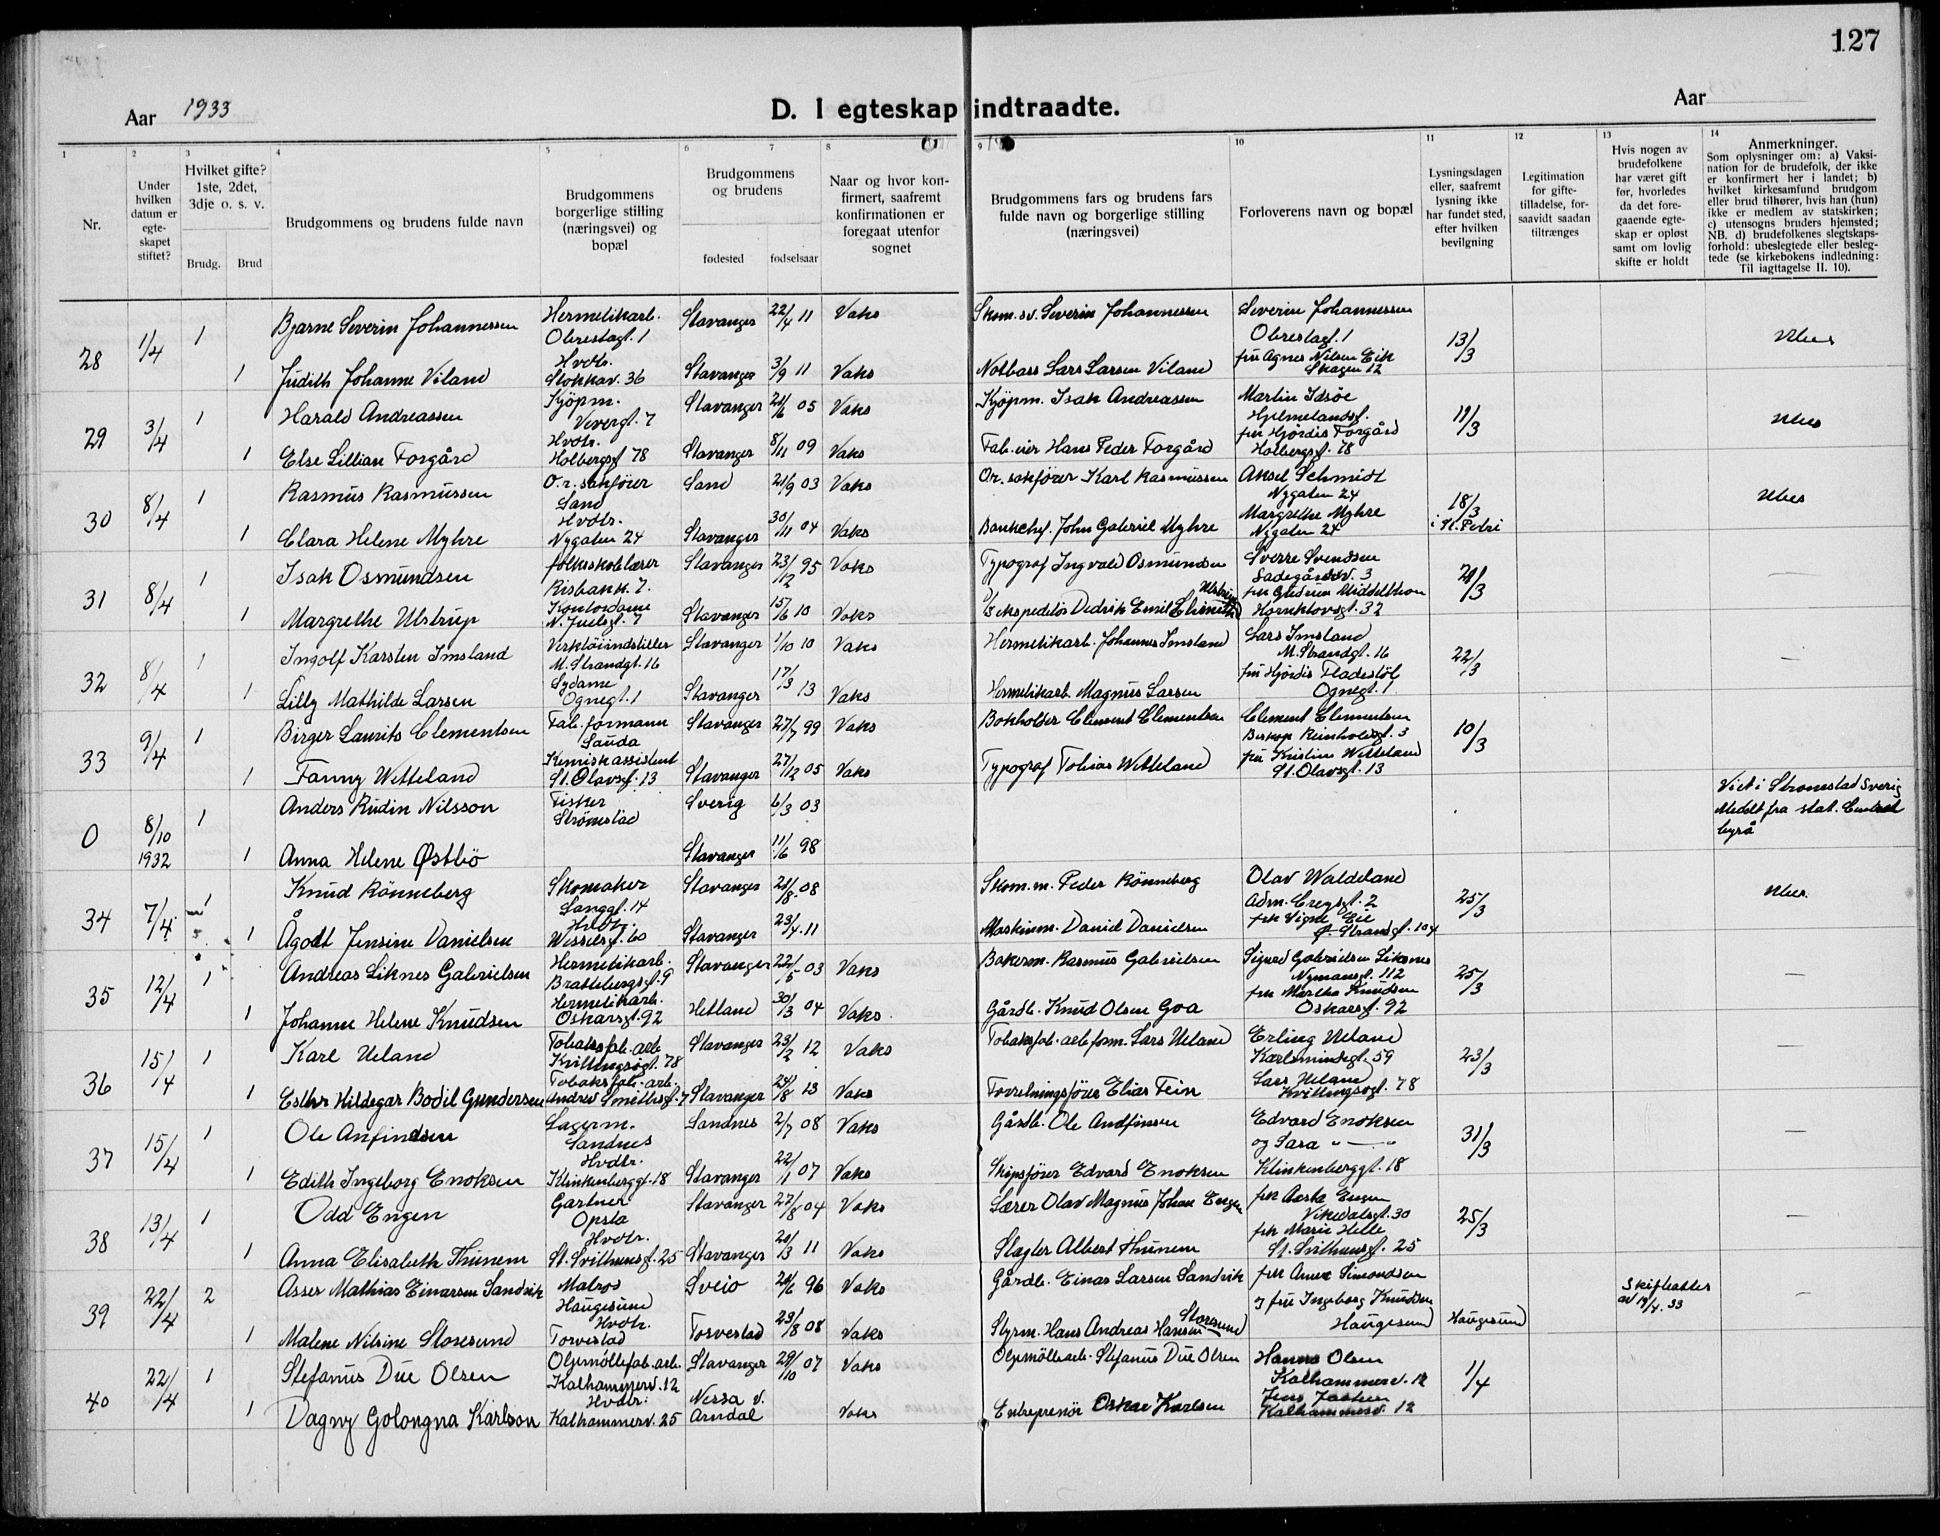 127
Aar 1933
D. I egteskap indtraadte.
Aar
1 2 3 4 5 6 7 8 9 10 11 12 13 14
Nr.
Under hvilken datum er egte-skapet stiftet?
Hvilket gifte? 1ste, 2det, 3dje o. s. v.
Brudg. Brud
Brudgommens og brudens fulde navn
Brudgommens borgerlige stilling (næringsvei) og bopæl
Brudgommens og brudens
fødested fødselsaar
Naar og hvor kon-firmert, saafremt konfirmationen er foregaat utenfor sognet
Brudgommens fars og brudens fars fulde navn og borgerlige stilling (næringsvei)
Forloverens navn og bopæl
Lysningsdagen eller, saafremt lysning ikke har fundet sted, efter hvilken bevilgning
Legitimation for gifte-tilladelse, for-saavidt saadan tiltrænges
Hvis nogen av brudefolkene har været gift før, hvorledes da det fore-gaaende egte-skap er opløst samt om lovlig skifte er holdt
Anmerkninger.
Som oplysninger om: a) Vaksi-nation for de brudefolk, der ikke er konfirmert her i landet; b) hvilket kirkesamfund brudgom eller brud tilhører, hvis han (hun) ikke er medlem av statskirken; c) utensogns bruders hjemsted; NB. d) brudefolkenes slegtskaps-forhold: ubeslegtede eller besleg-tede (se kirkebokens indledning: Til iagttagelse II. 10).
28 1/4 1 Bjarne Severin Johannessen Hermetikarb. Obrestagt. 1 Stavanger 22/4 11 Vaks Skom.sv. Severin Johannessen Severin Johannessen Obrestagt. 1 13/3 Ubes
1 Judith Johanne Viland Hvdtr. Stokkav. 36 Stavanger 3/9 11 Vaks Notbass Lars Larsen Viland fru Agnes Nilsen Eik Skagen 12
29 3/4 1 Harald Andreassen Kjöpm. Ververgt. 7 Stavanger 21/6 05 Vaks Kjöpm. Isak Andreassen Martin Idsöe Hjelmelandsgt. 19/3 Ubes
1 Else Lillian Torgård Hvdtr. Holbergsgt 78 Stavanger 8/11 09 Vaks Fab. eier Hans Peder Torgård fru Hjördis Torgård Holbergsgt. 78
30 8/4 1 Rasmus Rasmussen O.r.sakförer Sand Sand 21/9 03 Vaks Or. sakförer Karl Rasmussen Aksel Schmidt Nygaten 24 18/3 i St. Petri Ubes
1 Clara Helene Myhre Hvdtr. Nygaten 24 Stavanger 30/11 04 Vaks Bankchef. John Gabriel Myhre Margrethe Myhre Nygaten 24
31 8/4 1 Isak Osmundsen folkeskolelærer Risbakk. 7. Stavanger 23/12 95 Vaks Typograf Ingvald Osmundsen Sverre Svendsen Ladegårdsv. 3 21/3 —
1 Margrethe Ulstrup Kontordame N. Juelsgt. 7 Stavanger 15/6 10 Vaks Ekspeditör Dedrik Emil Ulstrup fru Gudrun Middelthon Hornklovsgt. 32
32 8/4 1 Ingolf Karsten Imsland Verktöiindstiller M. Strandgt. 16 Stavanger 1/10 10 Vaks Hermetikarb. Johannes Imsland Lars Imsland M. Strandgt. 16 22/3 —
1 Lilly Mathilde Larsen Sydame Ognegt. 1 Stavanger 17/3 13 Vaks Hermetikarb. Magnus Larsen fru Hjördis Fladestöl Ognegt. 1
33 9/4 1 Birger Laurits Clementsen Fab. formann Sauda Stavanger 27/7 99 Vaks Bokholder Clement Clementsen Clement Clementsen Biskop Reinholdsgt. 3 10/3
1 Fanny Wetteland Kemisk assistent St. Olavsgt. 13 Stavanger 27/12 05 Vaks Typograf Tobias Wetteland fru Kristine Wetteland St. Olavsgt. 13
0 8/10 1932 1 Anders Rudin Nilsson Fisker Strömstad Sverig 6/3 03 Viet i Stromstad Sverig Meddt fra stat. Central byrå
1 Anna Helene Østbö Stavanger 11/6 98
34 7/4 1 Knud Rönneberg Skomaker Langgt. 14 Stavanger 21/8 08 Skom.m. Peder Rönneberg Olav Waldeland Adm. Creysgt. 2 25/3 Ubes.
1 Ågodt Jensine Danielsen Hvdtr. Wesselsgt. 60 Stavanger 23/4 11 Maskinm. Daniel Danielsen frk Signe Eie Ø. Strandgt. 104
35 12/4 1 Andreas Liknes Gabrielsen Hermetikarb. Brattebergsgt. 9 Stavanger 22/5 03 Vaks Bakerm. Rasmus Gabrielsen Sigurd Gabrielsen Liknes Nymansgt. 112 25/3 —
1 Johanne Helene Knudsen Hermetikarb. Oskarsgt. 92 Hetland 30/3 04 Vaks. Gårdb. Knud Olsen Goa frk Martha Knudsen Oskarsgt. 92
36 15/4 1 Karl Ueland Tobaksfab. arb Kvitingsögt. 78 Stavanger 23/2 12 Vaks Tobaksfab. arb form. Lars Ueland Erling Ueland Karlsmindegt. 59 23/3 —
1 Esther Hildegar Bodil Gundersen Tobaksfab. arb. Andrew Smithsgt. 7 Stavanger 24/8 13 Vaks Forretningsförer Elias Tein Lars Ueland Kvitingsögt. 78
37 15/4 1 Ole Anfindsen Lagerm. Sandnes Sandnes 2/7 08 Vaks Gårdb. Ole Andfinsen Edvard Enoksen og Sara " — " 31/3 —
1 Edith Ingeborg Enoksen Hvdtr. Klinkenberggt. 18 Stavanger 22/1 07 Vaks Skipsförer Edvard Enoksen Klinkenberggt. 18
38 13/4 1 Odd Engen Gartner Opstad Stavanger 27/8 04 Vaks Lærer Olav Magnus Johan Engen frk Aasta Engen Vikedalsgt. 30 25/3 —
1 Anna Elisabeth Thunem Hvdtr. St. Svithunsgt. 25 Stavanger 20/3 11 Vaks Slagter Albert Thunem frk Marie Helle St. Svithunsgt. 25
39 22/4 2 Asser Mathias Einarsen Sandvik Matros Haugesund Sveio 20/6 96 Vaks Gårdb. Einar Larsen Sandvik frk Anna Simondsen Haugesund Skifteattest av 19/4. 33 —
1 Malene Nilsine Storesund Hvdtr. Torvestad Torvestad 23/8 08 Vaks Styrm. Hans Andreas Hansen Storesund og fru Ingeborg Knudsen Haugesund
40 22/4 1 Stefanus Due Olsen Oljemöllefab. arb. Kalhammerv. 12 Stavanger 29/10 07 Vaks Oljemöllearb. Stefanus Due Olsen Hanna Olsen Kalhammerv. 12 1/4 —
1 Dagny Golongna Karlson Hvdtr. Kalhammerv. 25 Nessa v. Arndal Vaks Entreprenör Oskar Karlsen Jens Kalhammerv. 12